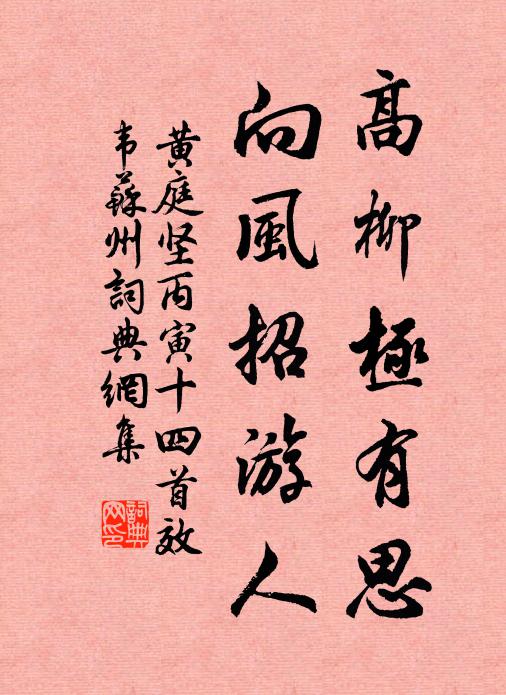 高柳極有思
向風招游人
黄庭坚丙寅十四首效
韦蘇州詞典網集
詞典
网印